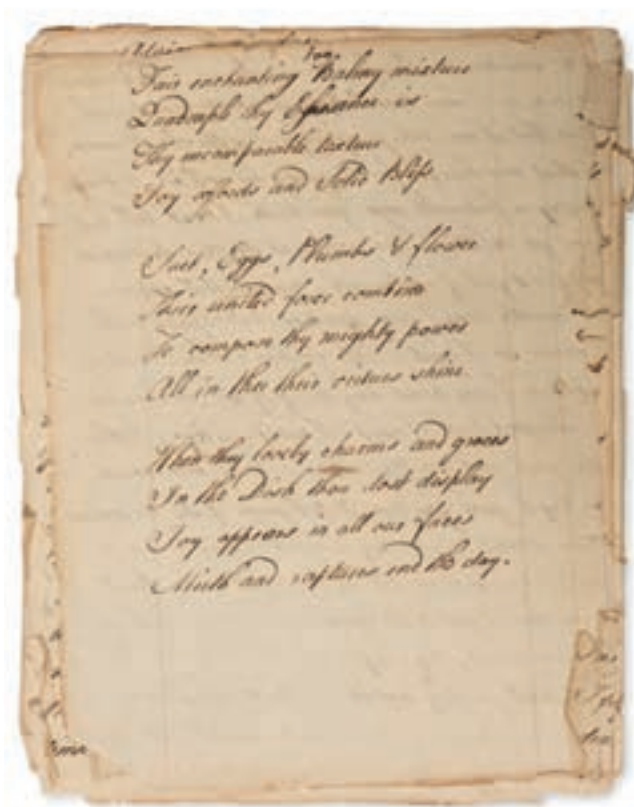 Fair enchanting Balmy mixture
Quadruple thy Essence is
Thy incomparable texture
Joy affords and Solid Bliss
Suet, Eggs, Plumbs & flower
Their united force combine
To compose thy mighty power
All in thee their virtues shine
When thy lovely charms and graces
In the Dish thou dost display
Joy appears in all our faces
Mirth and raptures end the day.